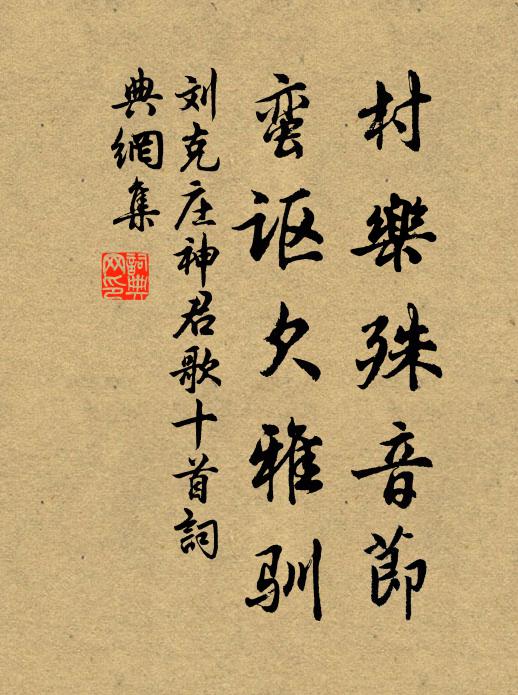 村樂殊音節
蛮讴欠雅驯
刘克庄神君歌十首詞
典網集
詞典网印